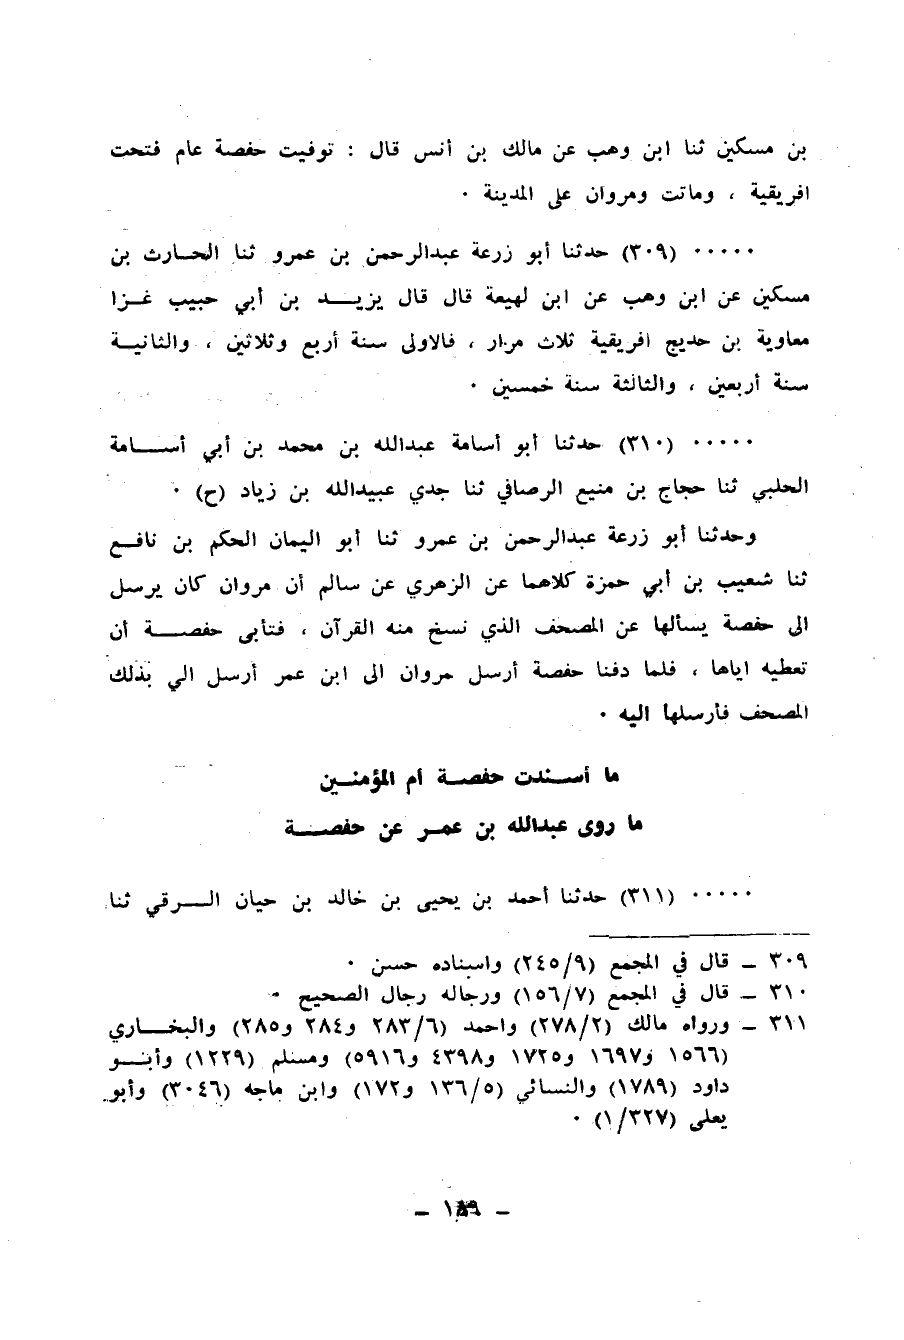 بن مسكين ثنا ابن وهب عن مالك بن أنس قال : توفيت حفصة عام فتحت
افريقية ، وماتت ومروان على المدينة ٠
٠٠٠٠٠ (٣٠٩) حدثنا أبو زرعة عبدالرحمن بن عمرو ثنا الحارث بن
مسكين عن ابن وهب عن ابن لهيعة قال قال يزيد بن أبي حبيب غزا
معاوية بن حديج افريقية ثلاث مرار ، فالاولى سنة أربع وثلاثين ، والثانية
سنة أربعين ، والثالثة سنة خمسين ٠
٠٠٠٠٠ (٣١٠) حدثنا أبو أسامة عبدالله بن محمد بن أبي أسامة
الحلبي ثنا حجاج بن منيع الرصافي ثنا جدي عبيدالله بن زياد (ح) ٠
وحدثنا أبو زرعة عبدالرحمن بن عمرو ثنا أبو اليمان الحكم بن نافع
ثنا شعيب بن أبي حمزة كلاهما عن الزهري عن سالم أن مروان كان يرسل
الى حفصة يسألها عن المصحف الذي نسخ منه القرآن ، فتأبى حفصة أن
تعطيه اياها ، فلما دفنا حفصة أرسل مروان الى ابن عمر أرسل الي بذلك
المصحف فأرسلها اليه ٠
ما أسندت حفصة أم المؤمنين
ما روى عبدالله بن عمر عن حفصة
٠٠٠٠٠ (٣١١) حدثنا أحمد بن يحيى بن خالد بن حيان الرقي ثنا
٣٠٩ ـ قال في المجمع (٢٤٥/٩) واسناده حسن ٠
٣١٠ ـ قال في المجمع (١٥٦/٧) ورجاله رجال الصحيح ٠
٣١١ ـ ورواه مالك (٢٧٨/٢) واحمد (٢٨٣/٦ و٢٨٤ و٢٨٥) والبخاري
(١٥٦٦ و١٦٩٧ و١٧٢٥ و٤٣٩٨ و٥٩١٦) ومسلم (١٢٢٩) وأبو
داود (١٧٨٩) والنسائي (١٣٦/٥ و١٧٢) وابن ماجه (٣٠٤٦) وأبو
يعلى (١/٣٢٧) ٠